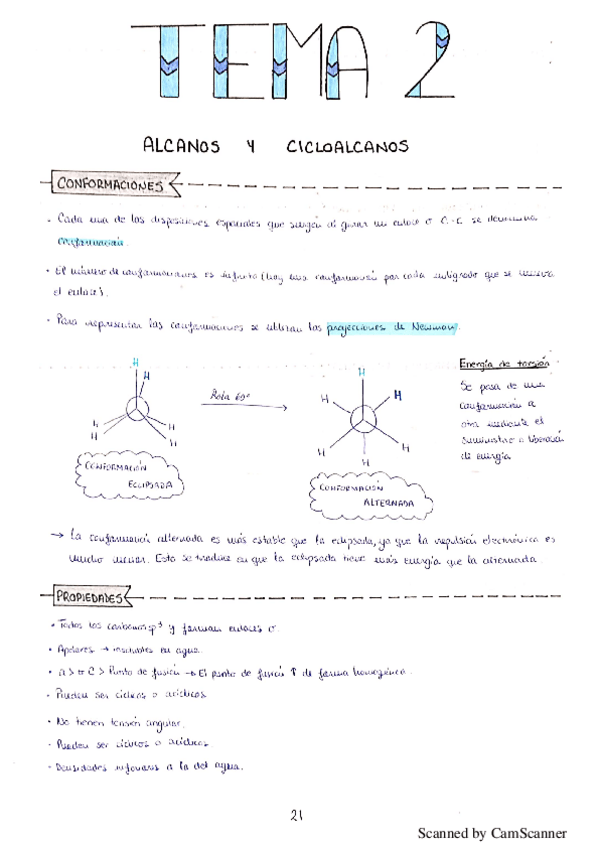 TEMA 2
ALCANOS Y CICLOALCANOS
CONFORMACIONES
· Cada una de las disposiciones espaciales que surgen al girar un enlace σ C-C se denomina
conformación.
· El número de conformaciones es infinito (hay una conformación por cada que se
el enlace).
· Para representar las conformaciones se utilizan las projecciones de Newman.
Energía de torsión
Se pasa de una
conformación a
otra mediante el
suministro o liberación
de energía
H
H
H
H
H
H
Rota 60º
H
H
H
H
H
H
CONFORMACIÓN
ECLIPSADA
CONFORMACIÓN
ALTERNADA
→ La conformación alternada es más estable que la eclipsada, ya que la repulsión electrónica es
mucho menor. Esto se traduce en que la eclipsada tiene más energía que la alternada
PROPIEDADES
· Todos los carbonos sp³ y forman enlaces σ.
· Apolares → insolubles en agua.
· Punto de fusión → El punto de fusión ↑ de forma homogénea.
· Pueden ser cíclicos o acíclicos
· No tienen tensión angular.
· Pueden ser cíclicos o acíclicos.
· Densidades inferiores a la del agua.
21
Scanned by CamScanner